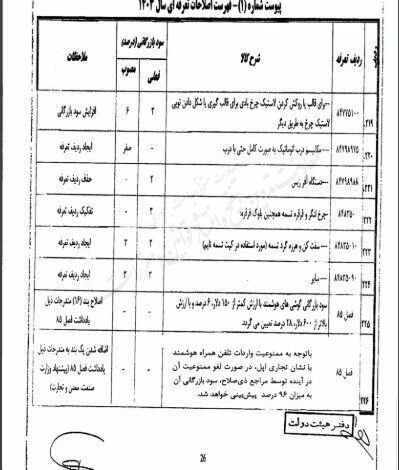 پیوست شماره (۱)- فهرست اصلاحات تعرفه ای سال ۱۴۰۳
ردیف تعرفه
شرح کالا
سود بازرگانی (درصد)
فعلی
مصوب
ملاحظات
۲۱۹
۸۴۷۷۵۱۰۰
---برای قالب یا روکش کردن لاستیک چرخ بادی برای قالب گیری یا شکل دادن تویی
لاستیک چرخ به طریق دیگر
۲
۶
افزایش سود بازرگانی
۲۲۰
۸۴۷۹۸۹۷۵
----مکانیسم درب اتوماتیک به صورت کامل حتی با درب
صفر
ایجاد ردیف تعرفه
۲۲۱
۸۴۷۹۸۹۸۸
۲
۰
حذف ردیف تعرفه
۲۲۲
۸۴۸۳۵۰
-چرخ لنگر و قرقره تسمه همچنین بلوک قرقره:
۳
۰
تفکیک ردیف تعرفه
۲۲۳
۸۴۸۳۵۰۱۰
---سفت کن و هرزه گرد تسمه (مورد استفاده در کیت تسمه تایم)
۲
ایجاد ردیف تعرفه
۲۲۴
۸۴۸۳۵۰۹۰
--- سایر
۲
۳
ایجاد ردیف تعرفه
۲۲۵
فصل ۸۵
سود بازرگانی گوشی های هوشمند با ارزش کمتر از ۱۵۰ دلار، ۶ درصد و با ارزش
بالاتر از ۶۰۰ دلار، ۲۸ درصد تعیین می گردد.
اصلاح بند (۱۶) مندرجات ذیل
یادداشت فصل ۸۵
۲۲۶
فصل ۸۵
باتوجه به ممنوعیت واردات تلفن همراه هوشمند
با نشان تجاری اپل، در صورت لغو ممنوعیت آن
در آینده توسط مراجع ذی‌صلاح، سود بازرگانی آن
به میزان ۹۶ درصد پیش‌بینی خواهد شد.
اضافه شدن یک بند به مندرجات ذیل
یادداشت فصل ۸۵ (پیشنهاد وزارت
صنعت معدن و تجارت)
دفتر هیئت دولت
26